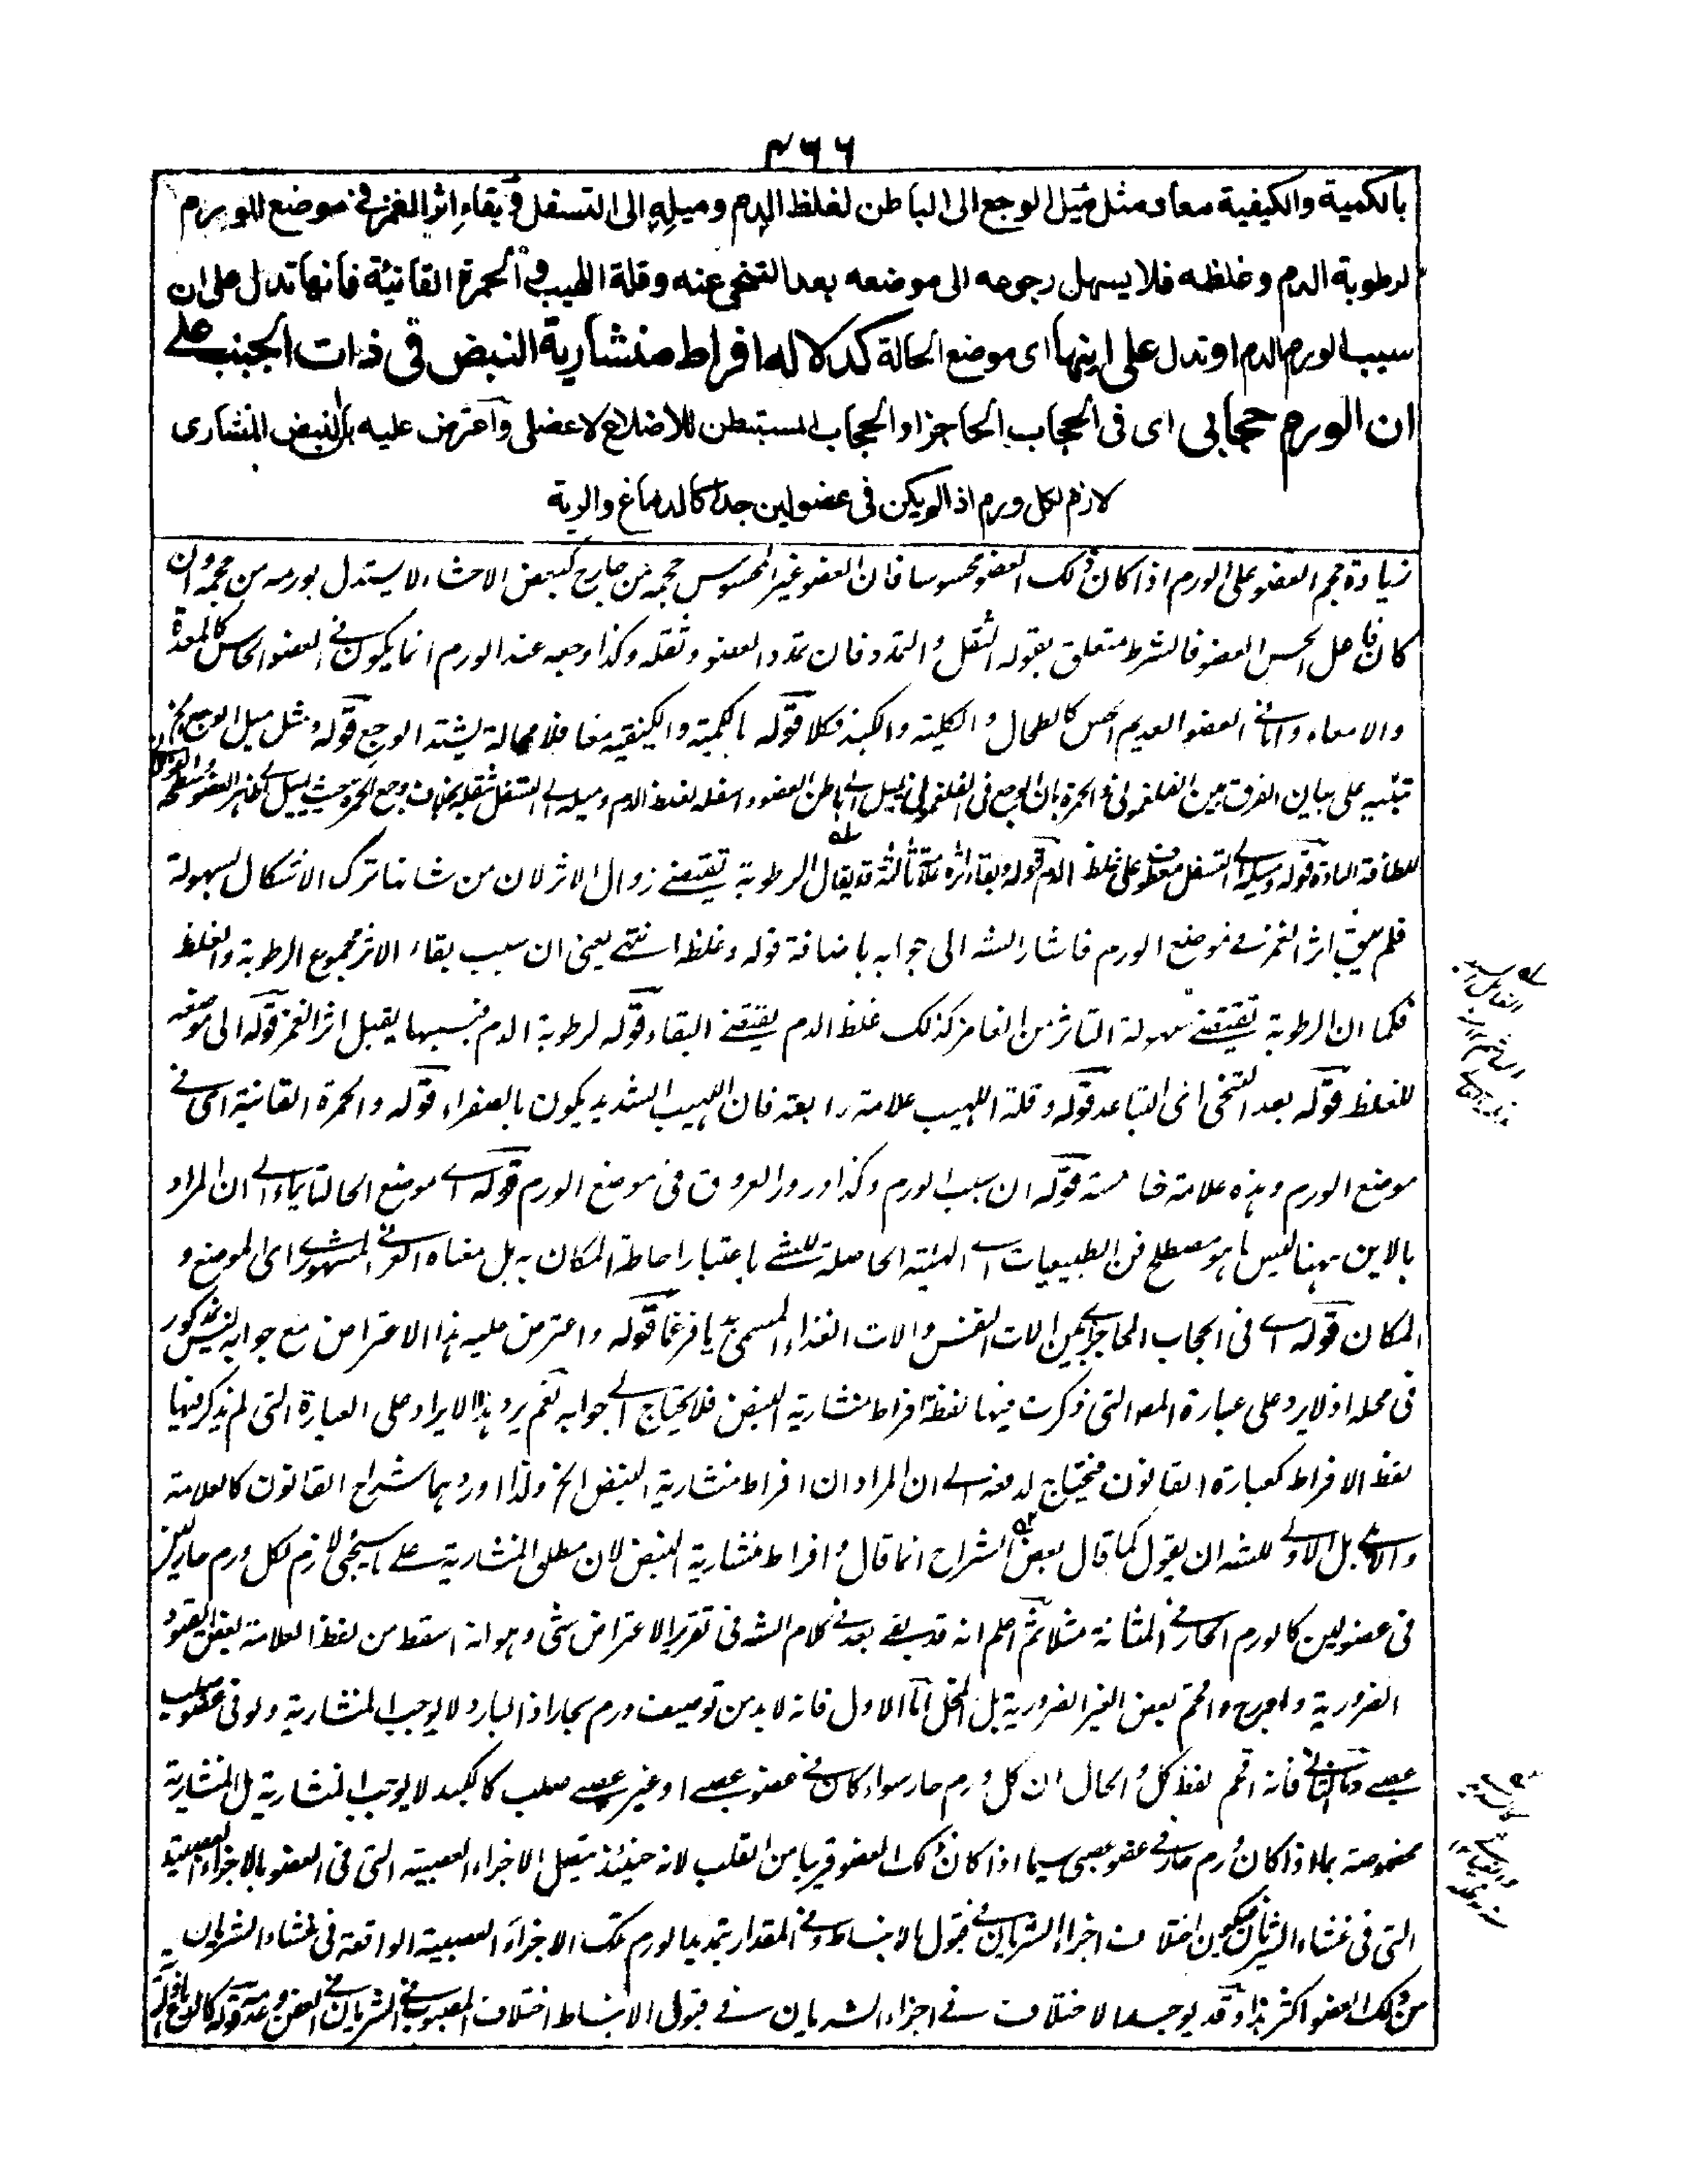 ٤٦٦
بالكمية والكيفية معا ومثل ميل الوجع الى الباطن لغلظ الدم وميله الى التسفل وبقاء اثر الغمز فى موضع الورم
لرطوبة الدم وغلظه فلا يسهل رجوعه الى موضعه بعد التنحى عنه وقلة اللهيب والحمرة القانية فانها تدل على ان
سبب الورم الدم او تدل على اينها اى موضع الحالة كدلالة افراط منشارية النبض فى ذات الجنب على
ان الورم حجابى اى فى الحجاب الحاجز او الحجاب المستبطن للاضلاع لا عضلى واعترض عليه بان النبض المنشارى
لازم لكل ورم اذا لم يكن فى عضو لين جدا كالدماغ والرية
زيادة حجم العضو على الورم اذا كان ذلك العضو محسوسا فان العضو غير المحسوس حجمه من خارج كبعض الاحشاء لا يستدل بورمه من حجمه وان
كان فاصل الحس العضو فالشرط متعلق بقوله الثقل والتمدد فان تمدد العضو وثقله وكذا وجعه عند الورم انما يكون فى العضو الحاس كالمعدة
والامعاء واما فى العضو العديم الحس كالطحال والكلية والكبد فكلا قوله بالكمية والكيفية معا فلا محالة يشتد الوجع قوله ومثل ميل الوجع الخ
تنبيه على بيان الفرق بين الفلغمونى والحمرة بان الوجع فى الفلغمونى يميل الى باطن العضو واسفله لغلظ الدم وميله الى التسفل لثقله بخلاف وجع الحمرة حيث يميل الى ظاهر العضو وسطحه
للطافة المادة قوله وميله الى التسفل معطوف على غلظ الدم قوله وبقاء اثره علامة ثالثة قد يقال الرطوبة تقتضى زوال الاثر لان من شانها ترك الاشكال بسهولة
فلم يبق اثر الغمز فى موضع الورم فاشار الشه الى جوابه باضافة قوله وغلظه انتهى يعنى ان سبب بقاء الاثر مجموع الرطوبة والغلظ
فكما ان الرطوبة تقتضى سهولة التاثر من الغامز كذلك غلظ الدم يقتضى البقاء قوله لرطوبة الدم فبسببها يقبل اثر الغمز قوله الى موضعه
للغلظ قوله بعد التنحى اى التباعد قوله وقلة اللهيب علامة رابعة فان اللهيب الشديد يكون بالصفراء قوله والحمرة القانية اى فى
موضع الورم وهذه علامة خامسة قوله ان سبب الورم وكذا درور العروق فى موضع الورم قوله اى موضع الحالة ايماء الى ان المراد
بالاين ههنا ليس ما هو مصطلح فن الطبيعيات اى الهيئة الحاصلة للشئ باعتبار احاطة المكان به بل معناه العرفى المشهور اى الموضع و
المكان قوله اى فى الحجاب الحاجز اى بين الات التنفس والات الغذاء المسمى بديافرغما قوله واعترض عليه هذا الاعتراض مع جوابه ليس مذكور
فى محله اذ لا يرد على عبارة المص التى ذكرت فيها لفظة افراط منشارية النبض فلا يحتاج الى جوابه نعم يرد هذا الايراد على العبارة التى لم يذكر فيها
لفظ الافراط كعبارة القانون فيحتاج لدفعه الى ان المراد ان افراط منشارية النبض الخ ولذا اوردهما شراح القانون كالعلامة
والآملى بل الاولى للشه ان يقول كما قال بعض الشراح انما قال افراط منشارية النبض لان مطلق المنشارية على ما سيجئ لازم لكل ورم حار ليس
فى عضو لين كالورم الحار فى المثانة مثلا ثم اعلم انه قد بقى بعد فى كلام الشه فى تقرير الاعتراض شئ وهو انه اسقط من لفظ العلامة بعض القيود
الضرورية وادرج واقحم بعض الغير الضرورية بل المخل اما الاول فانه لا بد من توصيف ورم بحار اذ البارد لا يوجب المنشارية ولو فى عضو صلب
عصبى واما الثانى فانه اقحم لفظ كل والحال ان كل ورم حار سواء كان فى عضو عصبى او غير عصبى صلب كالكبد لا يوجب المنشارية بل المنشارية
مخصوصة بما اذا كان ورم حار فى عضو عصبى سيما اذا كان ذلك العضو قريبا من القلب لانه حينئذ يتصل الاجزاء العصبية التى فى العضو بالاجزاء العصبية
التى فى غشاء الشريان فيكون اختلاف اجزاء الشريان فى قبول الانبساط وفى المقدار بتمديد الورم تلك الاجزاء العصبية الواقعة فى غشاء الشريان
من ذلك العضو اكثر هذا وقد يوجب الاختلاف فى اجزاء الشريان فى قبول الانبساط اختلاف المصبوب فى الشريان فى العفن وعدمه قوله كالدماغ